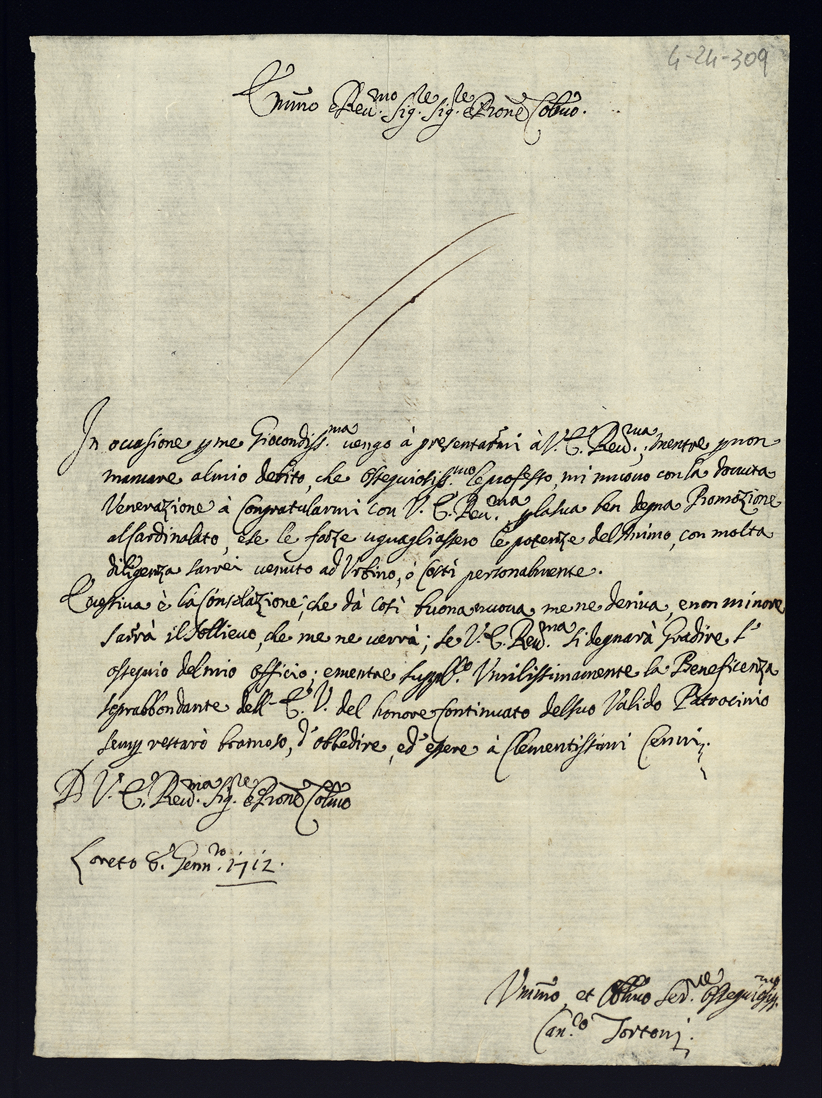 4-24-309
Em̃mo e Reu.mo Sig.re Sig.re e Pron̄e Col̄mo.
In occasione p me Giocondiss.ma uengo à presentarmi à V. E. Reu.ma, mentre p non
mancare al mio debito, che ossequiosiss.mo le professo, mi muouo con la douuta
Venerazione à Congratularmi con V. E. Reu.ma p la sua ben degna Promozione
al Cardinalato, e se le forze uguagliassero le potenze del Animo, con molta
diligenza sarrei uenuto ad Vrbino, ò Costì personalmente.
Excessiua è la Consolazione, che dà così buona nuoua me ne deriua, e non minore
sarrà il sollieuo, che me ne uerrà; se V. E. Reu.ma si degnarà Gradire l'
ossequio del mio officio; e mentre suppl.co Vmilissimamente la Beneficenza
soprabbondante dell' E. V. del honore continuato del suo Valido Patrocinio
semp restarò bramoso, d'obbedire, ed' essere à Clementissimi Cenni.
D V. E. Reu.ma Sig.re e Pron̄e Col̄mo
Loreto 8. Genn.ro 1712.
Vm̃mo, et Obl̄mo Ser.re Ossequiosiss.mo
Can.co Tortoni.